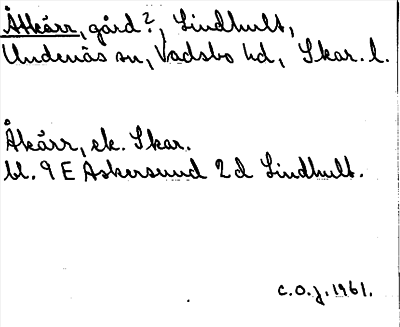 Åtkärr, gård?, Lindhult,
Undenäs sn, Vadsbo hd, Skar. l.
Åkärr, ek. Skar.
bl. 9 E Askersund 2 d Lindhult.
C.O.J. 1961.